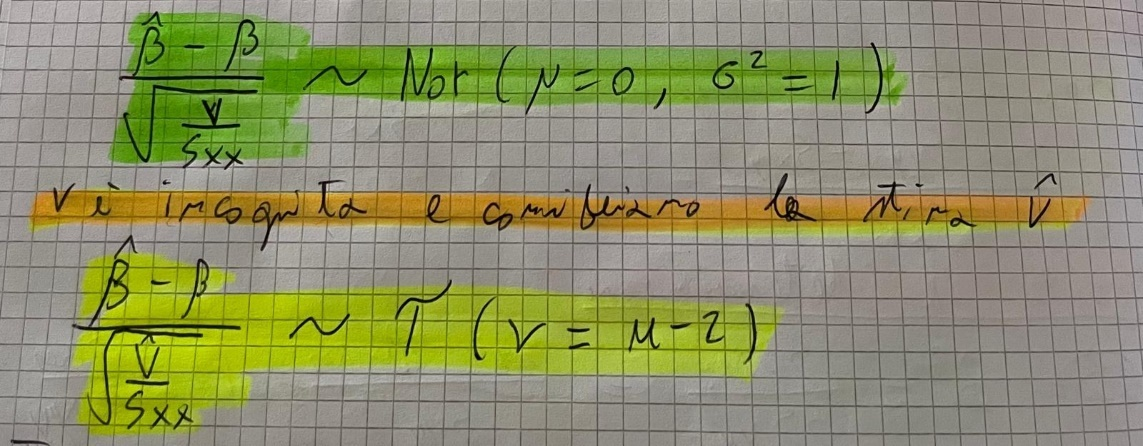 β̂ - β / √(V / Sxx) ~ Nor (μ=0, σ² = 1)
V è incognita e consideriamo la stima V̂
β̂ - β / √(V̂ / Sxx) ~ T (ν = n-2)